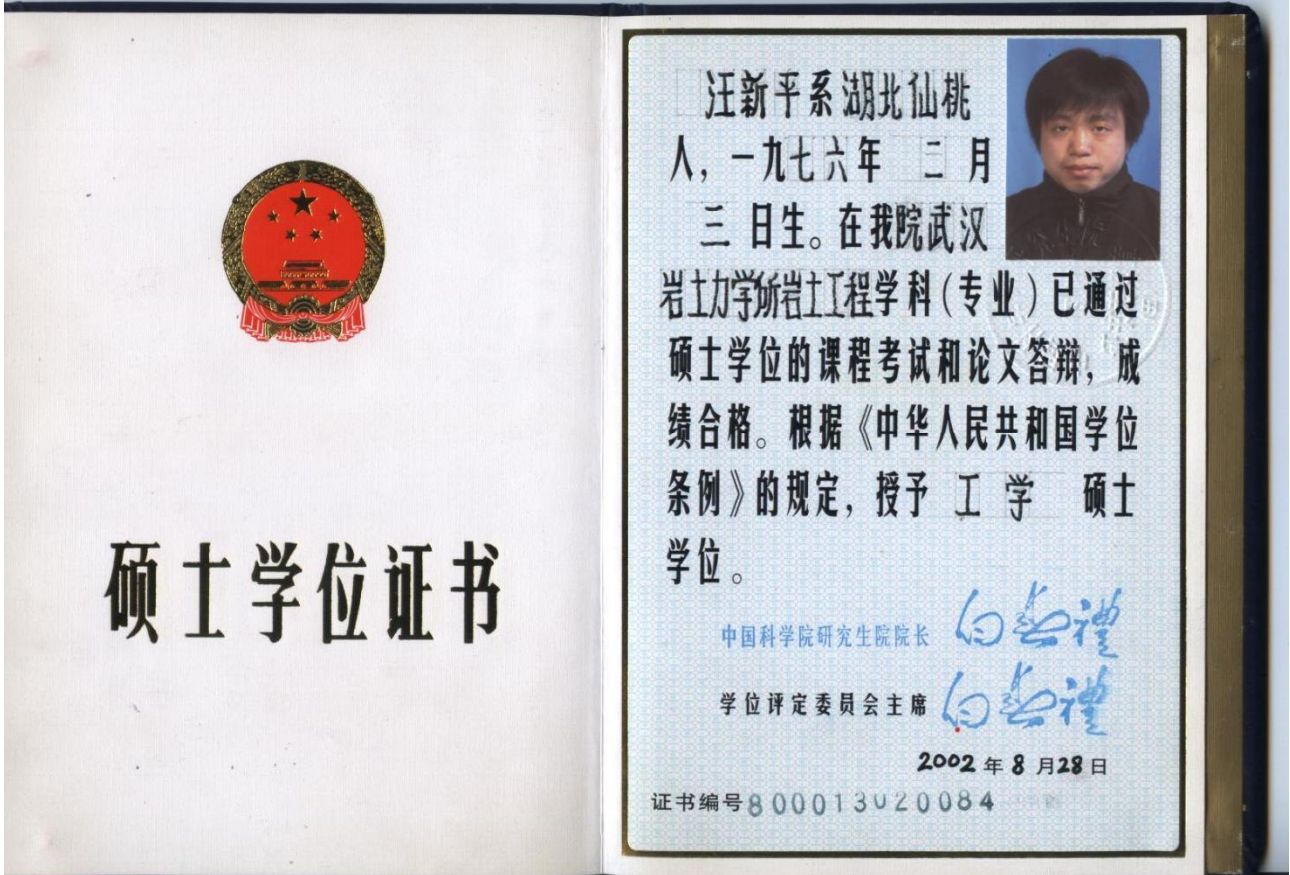 硕士学位证书
汪新平系湖北仙桃
人，一九七六年 二 月
三 日生。在我院武汉
岩土力学所岩土工程学科（专业）已通过
硕士学位的课程考试和论文答辩，成
绩合格。根据《中华人民共和国学位
条例》的规定，授予 工 学 硕士
学位。
中国科学院研究生院院长 白春禮
学位评定委员会主席 白春禮
2002 年 8 月 28 日
证书编号 800013020084